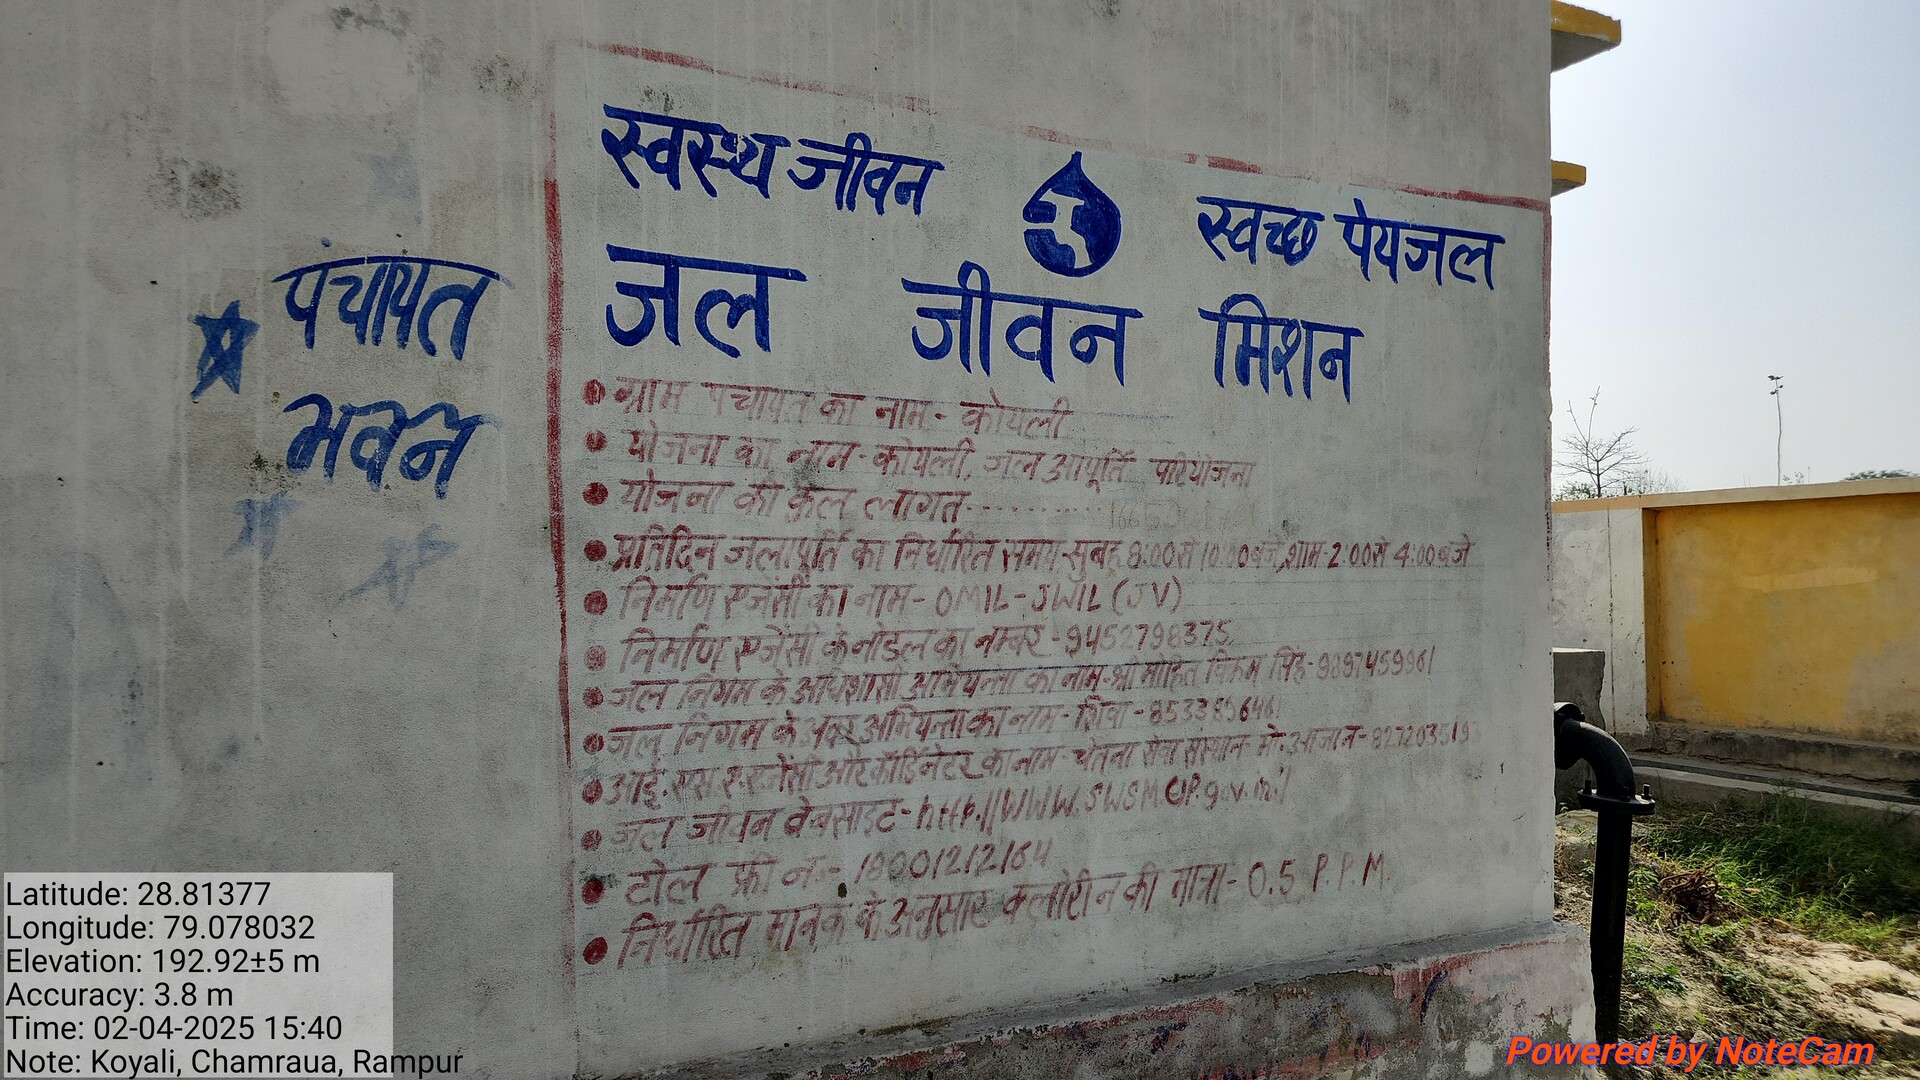 स्वस्थ जीवन
स्वच्छ पेयजल
जल जीवन मिशन
पंचायत
भवन
ग्राम पंचायत का नाम - कोयली
योजना का नाम - कोयली जल आपूर्ति परियोजना
योजना की कुल लागत..........
प्रतिदिन जलापूर्ति का निर्धारित समय-सुबह 8:00 से 10:00 बजे, शाम-2:00 से 4:00 बजे
निर्माण एजेंसी का नाम - OMIL-JWIL (JV)
निर्माण एजेंसी के नोडल का नम्बर - 9452798375
जल निगम के अधिशासी अभियन्ता का नाम-श्री मोहित विक्रम सिंह-9897459961
जल निगम के अवर अभियन्ता का नाम - शिवा -
आई.एस.ए. एजेंसी और कॉर्डिनेटर का नाम - चेतना सेवा संस्थान- मो. आजान -
जल जीवन वेबसाइट - http.//WWW.SWSMUP.gov.in/
टोल फ्री नं.- 18001212164
निर्धारित मानक के अनुसार क्लोरीन की मात्रा - 0.5 P.P.M.
Latitude: 28.81377
Longitude: 79.078032
Elevation: 192.92±5 m
Accuracy: 3.8 m
Time: 02-04-2025 15:40
Note: Koyali, Chamraua, Rampur
Powered by NoteCam